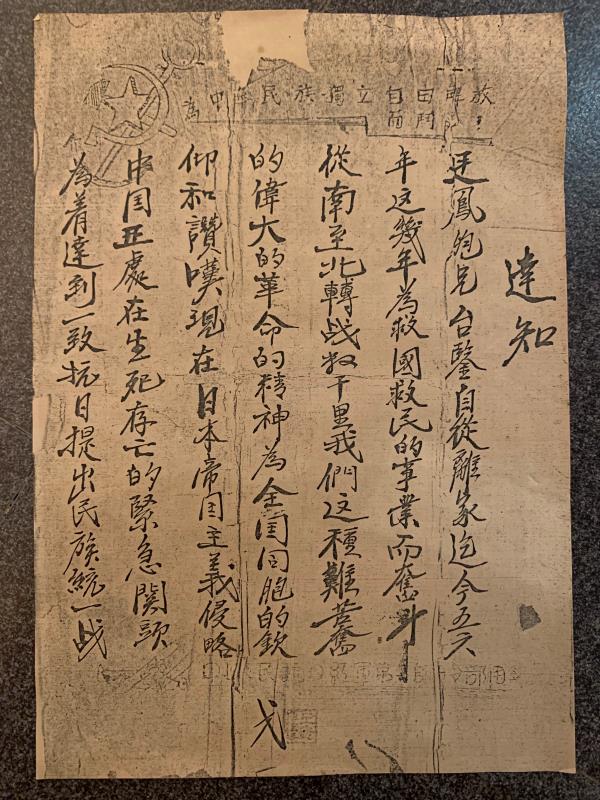 為中華民族獨立自由解放
達知
廷鳳胞兄台鑒自從離家迄今五六
年这幾年為救國救民的事業而奮斗
從南至北轉战数千里我們这種難苦奮
的偉大的革命的精神為全国同胞的欽
仰和讚嘆現在日本帝国主義侵略
中国正處在生死存亡的緊急関頭
為着達到一致抗日提出民族統一战